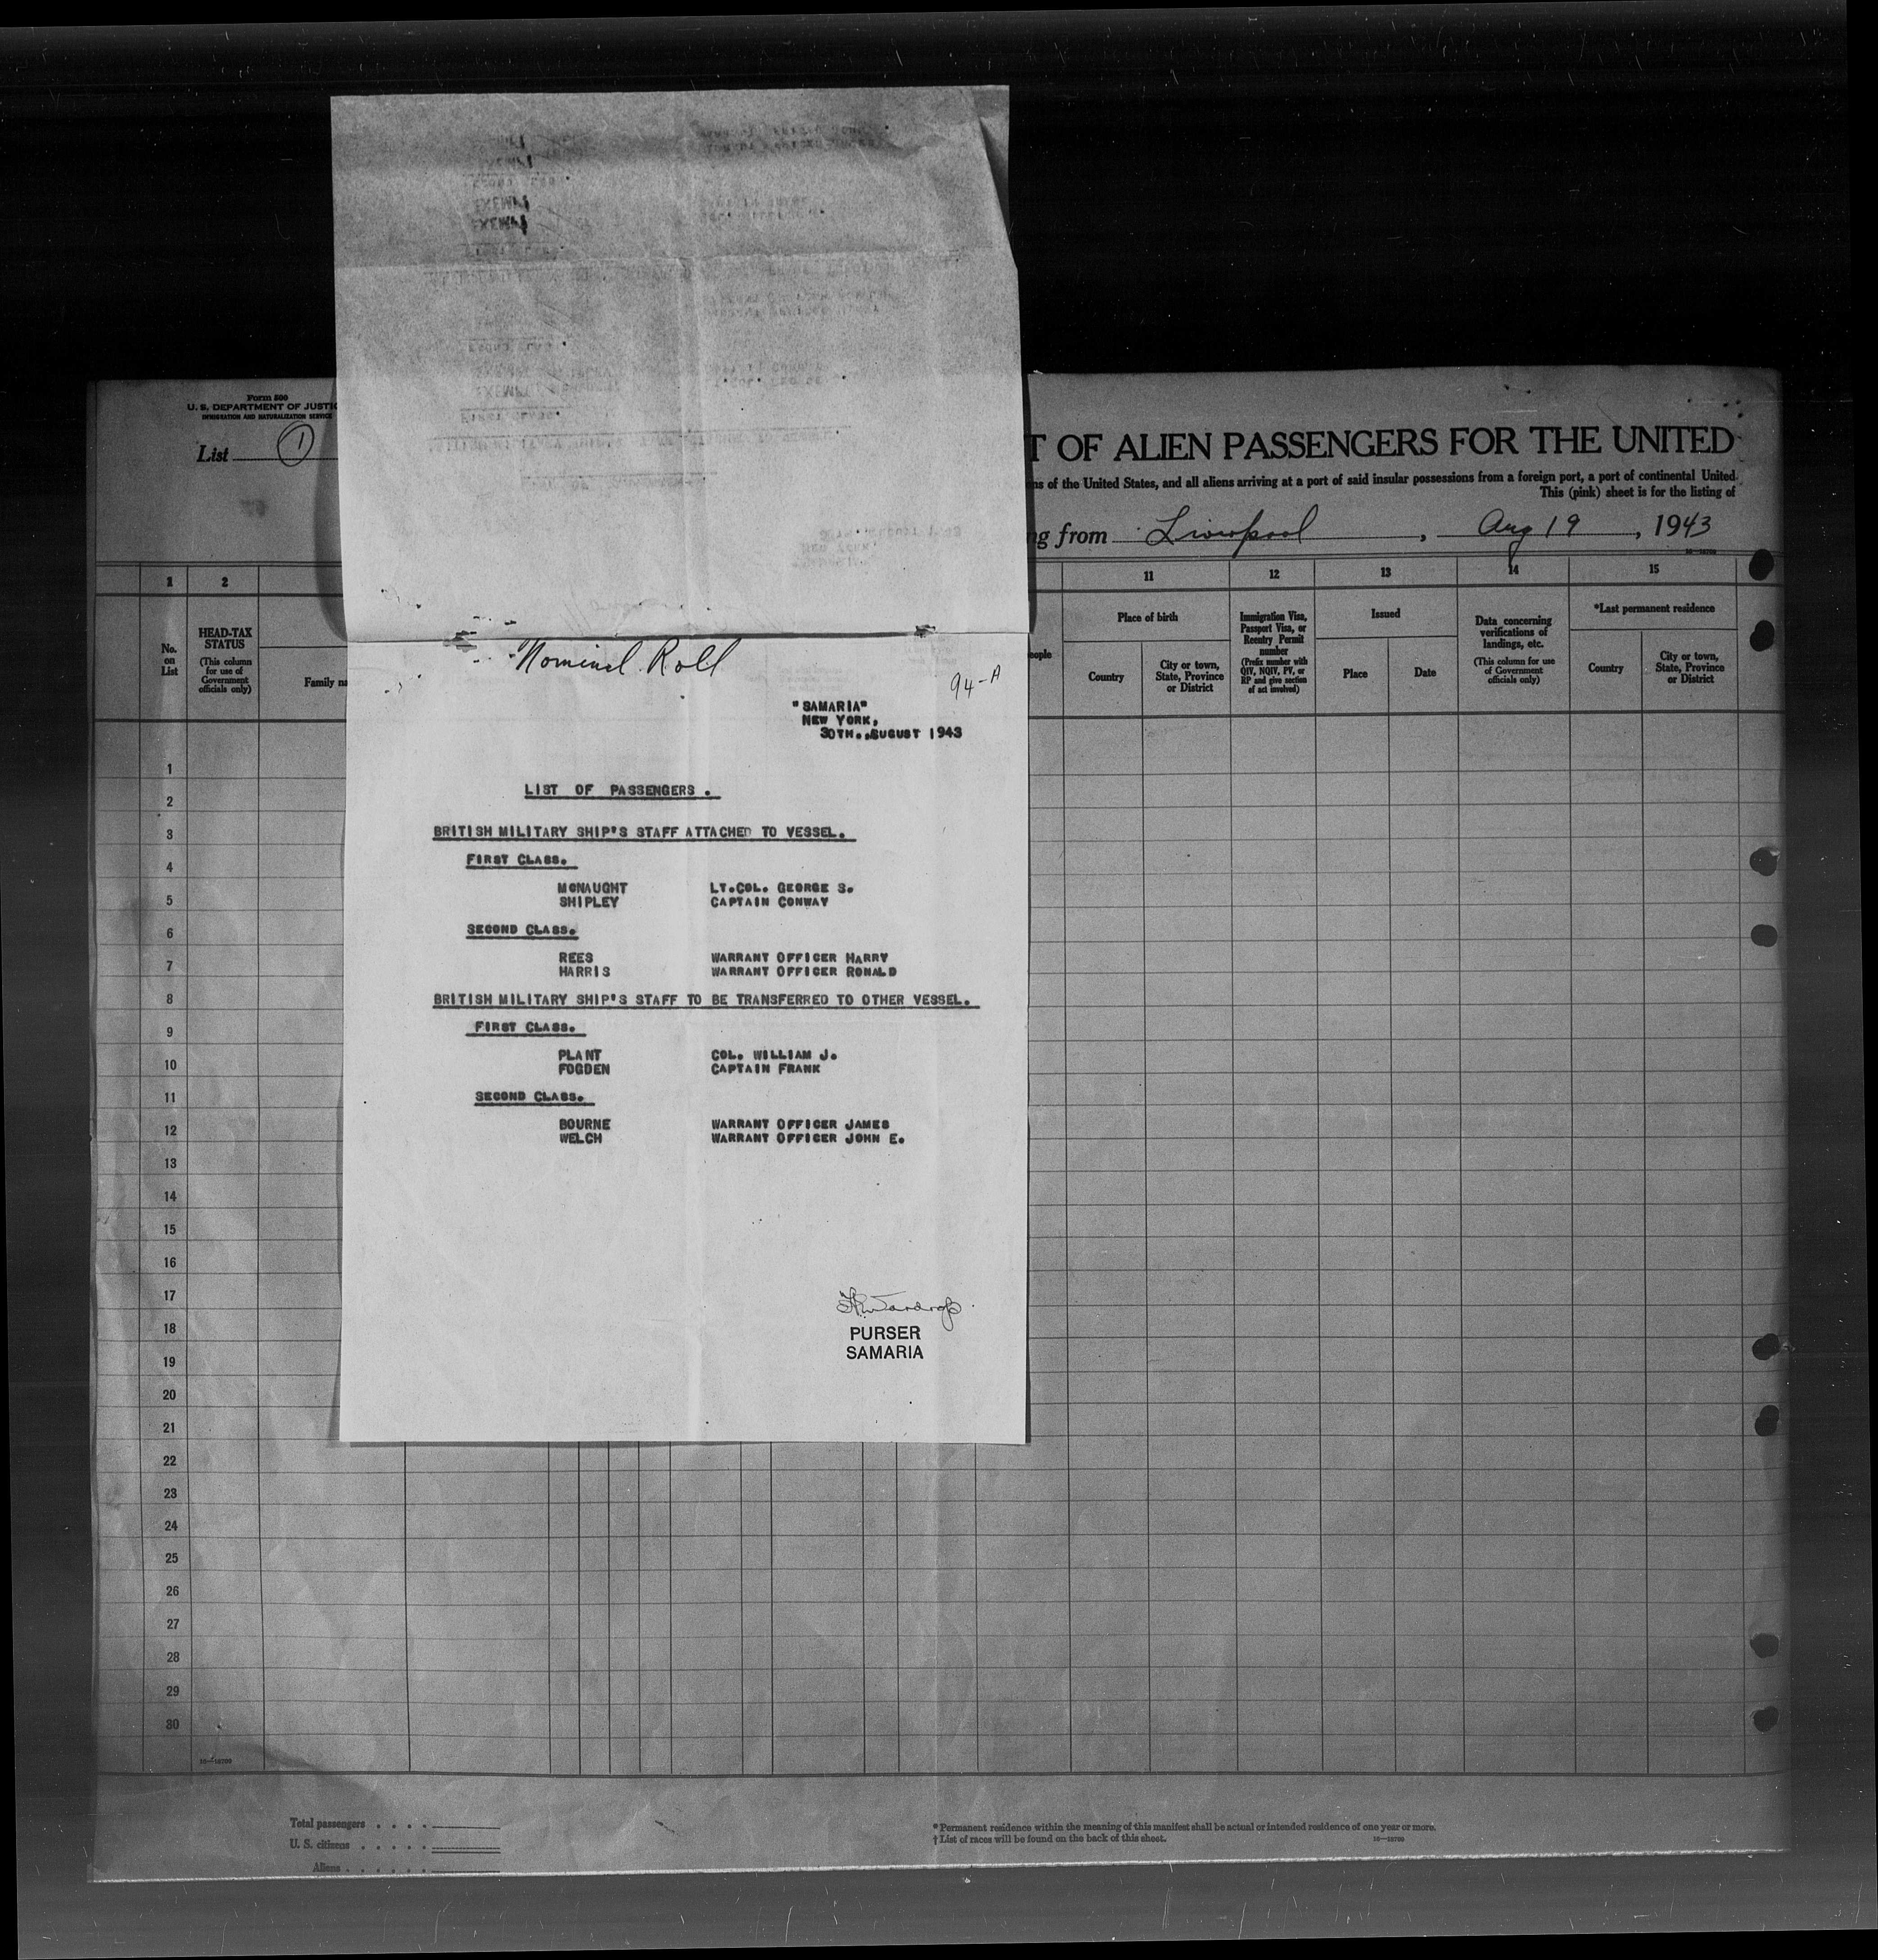 Form 500
U. S. DEPARTMENT OF JUSTIC
IMMIGRATION AND NATURALIZATION SERVICE
List 1
T OF ALIEN PASSENGERS FOR THE UNITED
ns of the United States, and all aliens arriving at a port of said insular possessions from a foreign port, a port of continental United
This (pink) sheet is for the listing of
ng from Liverpool, Aug 19, 1943
1 2 11 12 13 14 15
No. on List
HEAD-TAX STATUS
(This column for use of Government officials only)
Family na
eople
Place of birth
Country
City or town, State, Province or District
Immigration Visa, Passport Visa, or Reentry Permit number
(Prefix number with QIV, NQIV, PV, or RP and give section of act involved)
Issued
Place
Date
Data concerning verifications of landings, etc.
(This column for use of Government officials only)
*Last permanent residence
Country
City or town, State, Province or District
Nominal Roll
94-A
"SAMARIA"
NEW YORK,
30TH. AUGUST 1943
LIST OF PASSENGERS .
BRITISH MILITARY SHIP'S STAFF ATTACHED TO VESSEL.
FIRST CLASS.
MCNAUGHT LT.COL. GEORGE S.
SHIPLEY CAPTAIN CONWAY
SECOND CLASS.
REES WARRANT OFFICER HARRY
HARRIS WARRANT OFFICER RONALD
BRITISH MILITARY SHIP'S STAFF TO BE TRANSFERRED TO OTHER VESSEL.
FIRST CLASS.
PLANT COL. WILLIAM J.
FOGDEN CAPTAIN FRANK
SECOND CLASS.
BOURNE WARRANT OFFICER JAMES
WELCH WARRANT OFFICER JOHN E.
PURSER
SAMARIA
1
2
3
4
5
6
7
8
9
10
11
12
13
14
15
16
17
18
19
20
21
22
23
24
25
26
27
28
29
30
16—18700
Total passengers . . . .
U. S. citizens . . . . .
Aliens . . . . . .
* Permanent residence within the meaning of this manifest shall be actual or intended residence of one year or more.
† List of races will be found on the back of this sheet.
16—18700